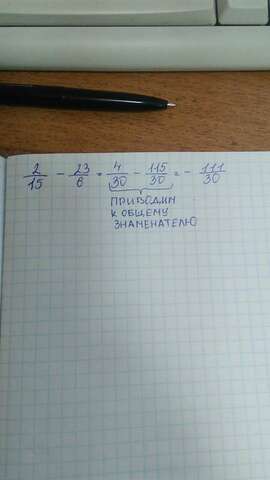 2/15 - 23/6 = 4/30 - 115/30 = - 111/30
ПРИВОДИМ
К ОБЩЕМУ
ЗНАМЕНАТЕЛЮ